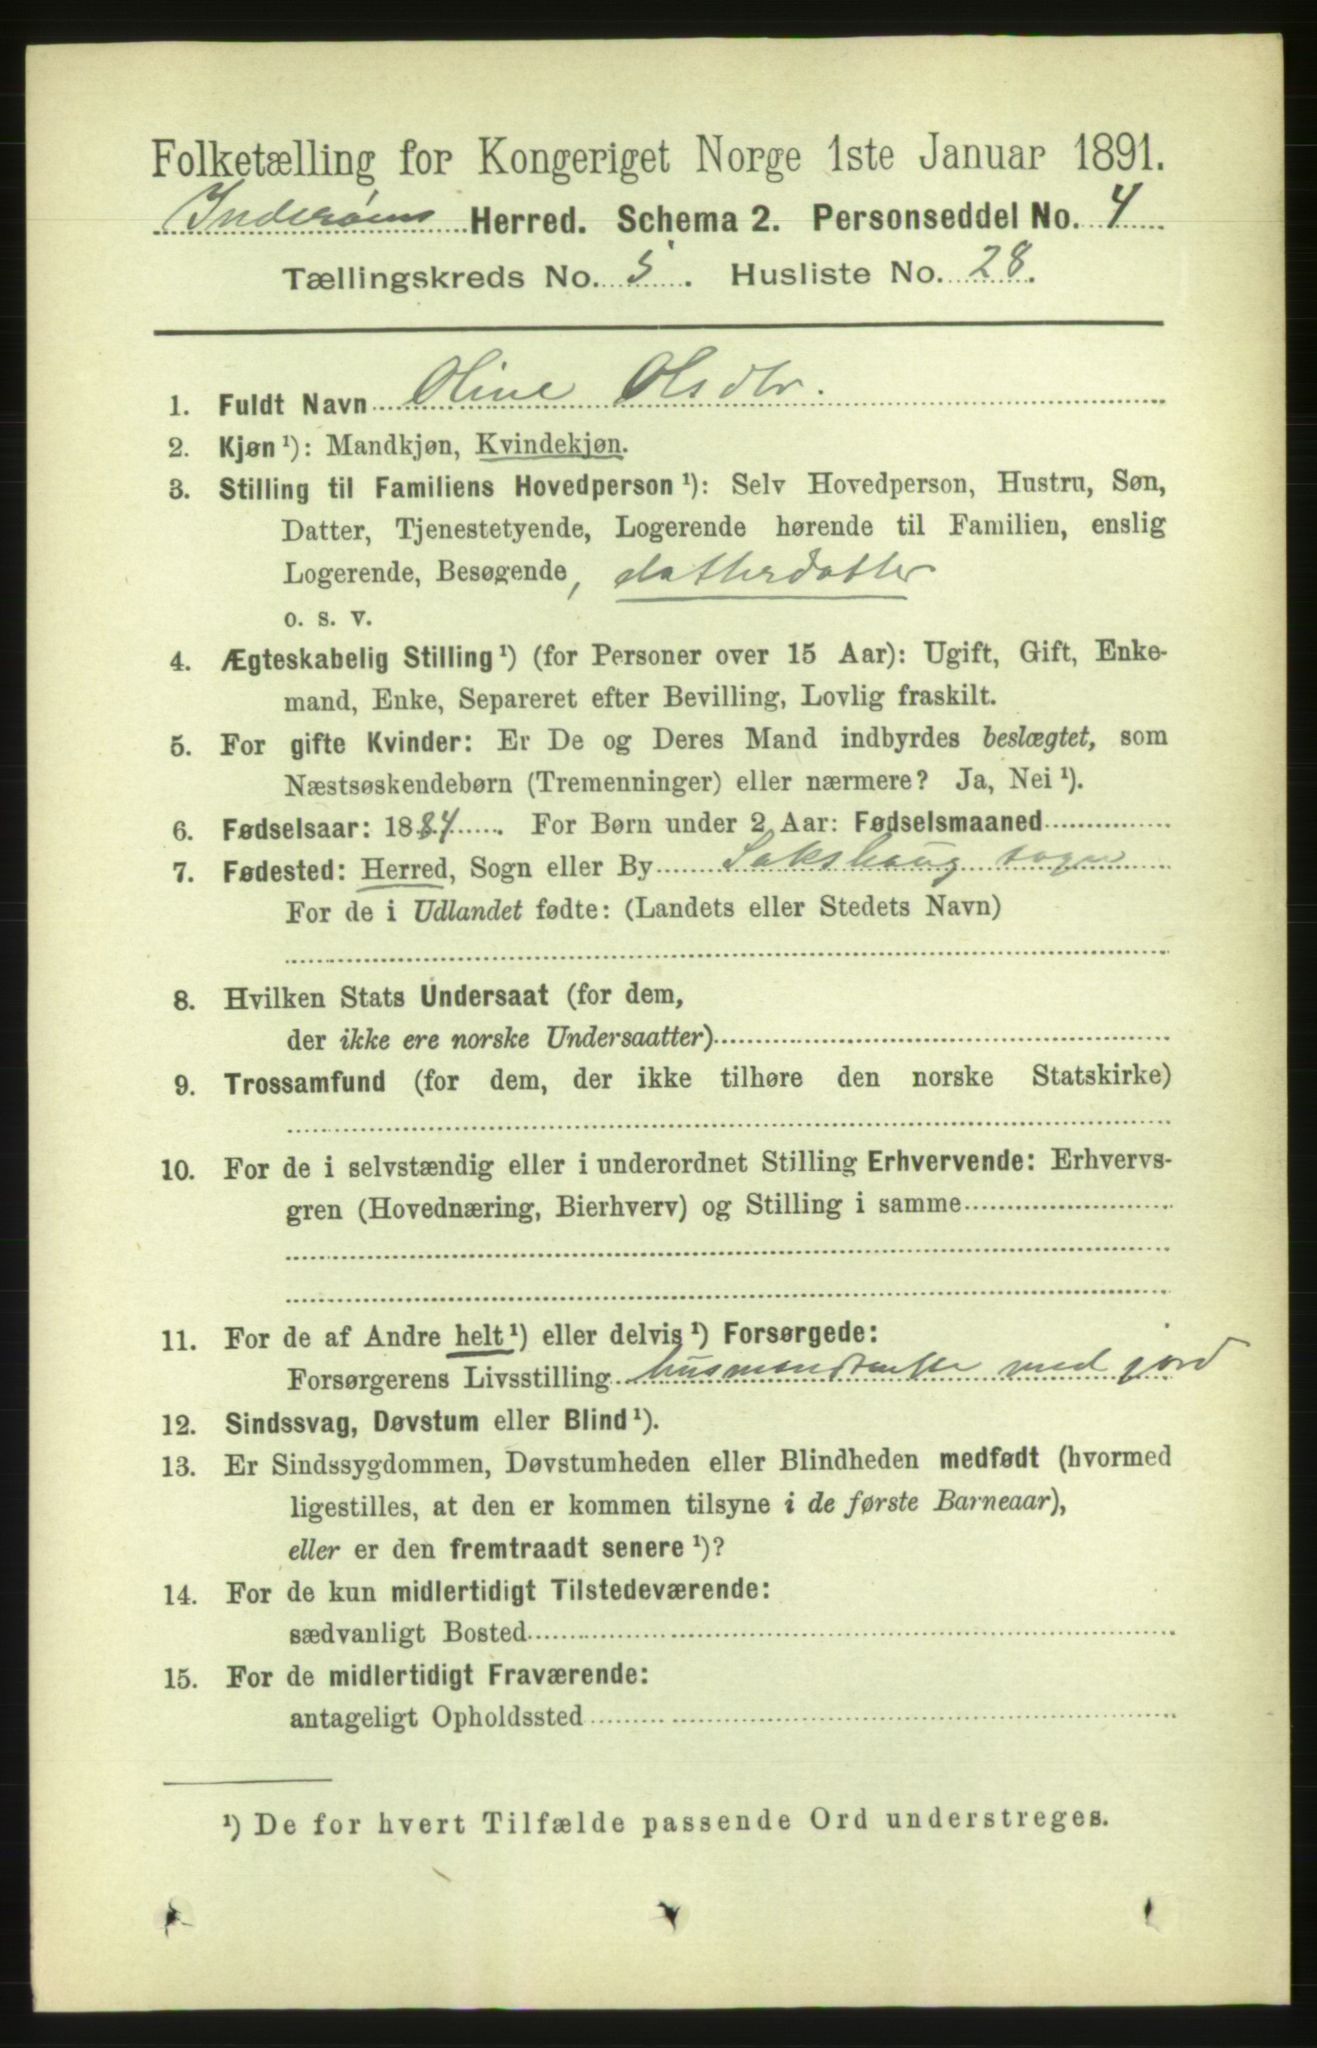 Folketælling for Kongeriget Norge 1ste Januar 1891.
Inderøens Herred. Schema 2. Personseddel No. 4
Tællingskreds No. 5. Husliste No. 28.
1. Fuldt Navn Oline Olsdtr.
2. Kjøn ¹): Mandkjøn, Kvindekjøn.
3. Stilling til Familiens Hovedperson ¹): Selv Hovedperson, Hustru, Søn,
Datter, Tjenestetyende, Logerende hørende til Familien, enslig
Logerende, Besøgende, datterdatter
o. s. v.
4. Ægteskabelig Stilling ¹) (for Personer over 15 Aar): Ugift, Gift, Enke-
mand, Enke, Separeret efter Bevilling, Lovlig fraskilt.
5. For gifte Kvinder: Er De og Deres Mand indbyrdes beslægtet, som
Næstsøskendebørn (Tremenninger) eller nærmere? Ja, Nei ¹).
6. Fødselsaar: 1884. For Børn under 2 Aar: Fødselsmaaned
7. Fødested: Herred, Sogn eller By Sakshaug sogn
For de i Udlandet fødte: (Landets eller Stedets Navn)
8. Hvilken Stats Undersaat (for dem,
der ikke ere norske Undersaatter)
9. Trossamfund (for dem, der ikke tilhøre den norske Statskirke)
10. For de i selvstændig eller i underordnet Stilling Erhvervende: Erhvervs-
gren (Hovednæring, Bierhverv) og Stilling i samme
11. For de af Andre helt ¹) eller delvis ¹) Forsørgede:
Forsørgerens Livsstilling husmandsenke med jord
12. Sindssvag, Døvstum eller Blind ¹).
13. Er Sindssygdommen, Døvstumheden eller Blindheden medfødt (hvormed
ligestilles, at den er kommen tilsyne i de første Barneaar),
eller er den fremtraadt senere ¹)?
14. For de kun midlertidigt Tilstedeværende:
sædvanligt Bosted
15. For de midlertidigt Fraværende:
antageligt Opholdssted
¹) De for hvert Tilfælde passende Ord understreges.